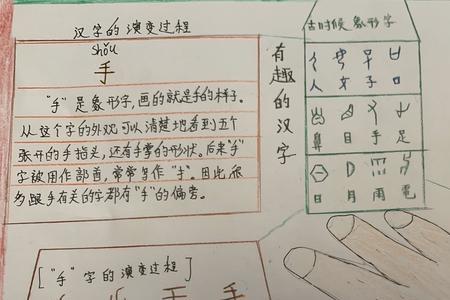 汉字的演变过程
shǒu
手
"手"是象形字，画的就是手的样子。
从这个字的外观可以清楚地看到五个
张开的手指头，还有手掌的形状。后来"手"
字被用作部首，常常写作"扌"。因此很
多跟手有关的字都有"手"的偏旁。
["手"字的演变过程]
手
有趣的汉字
古时候象形字
人 女 子 口
鼻 目 手 足
日 月 雨 電